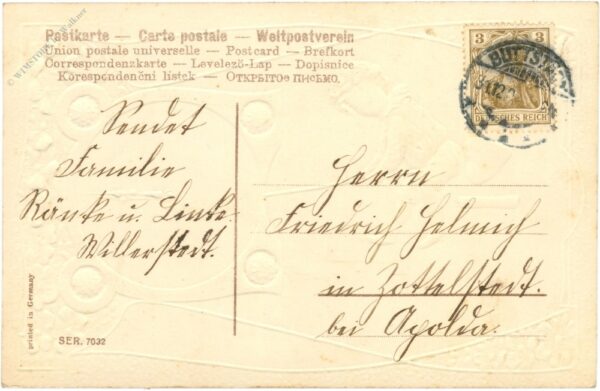 Postkarte — Carte postale — Weltpostverein
Union postale universelle — Postcard — Brefkort
Correspondenzkarte — Levelező-Lap — Dopisnice
Korespondenční lístek — ОТКРЫТОЕ ПИСЬМО.
3 3
DEUTSCHES REICH
BUTTSTÄDT
Sendet
Familie
Ränke u. Linke
Willerstedt.
Herrn
Friedrich Helmich
in Zottelstedt.
bei Apolda.
printed in Germany
SER. 7032